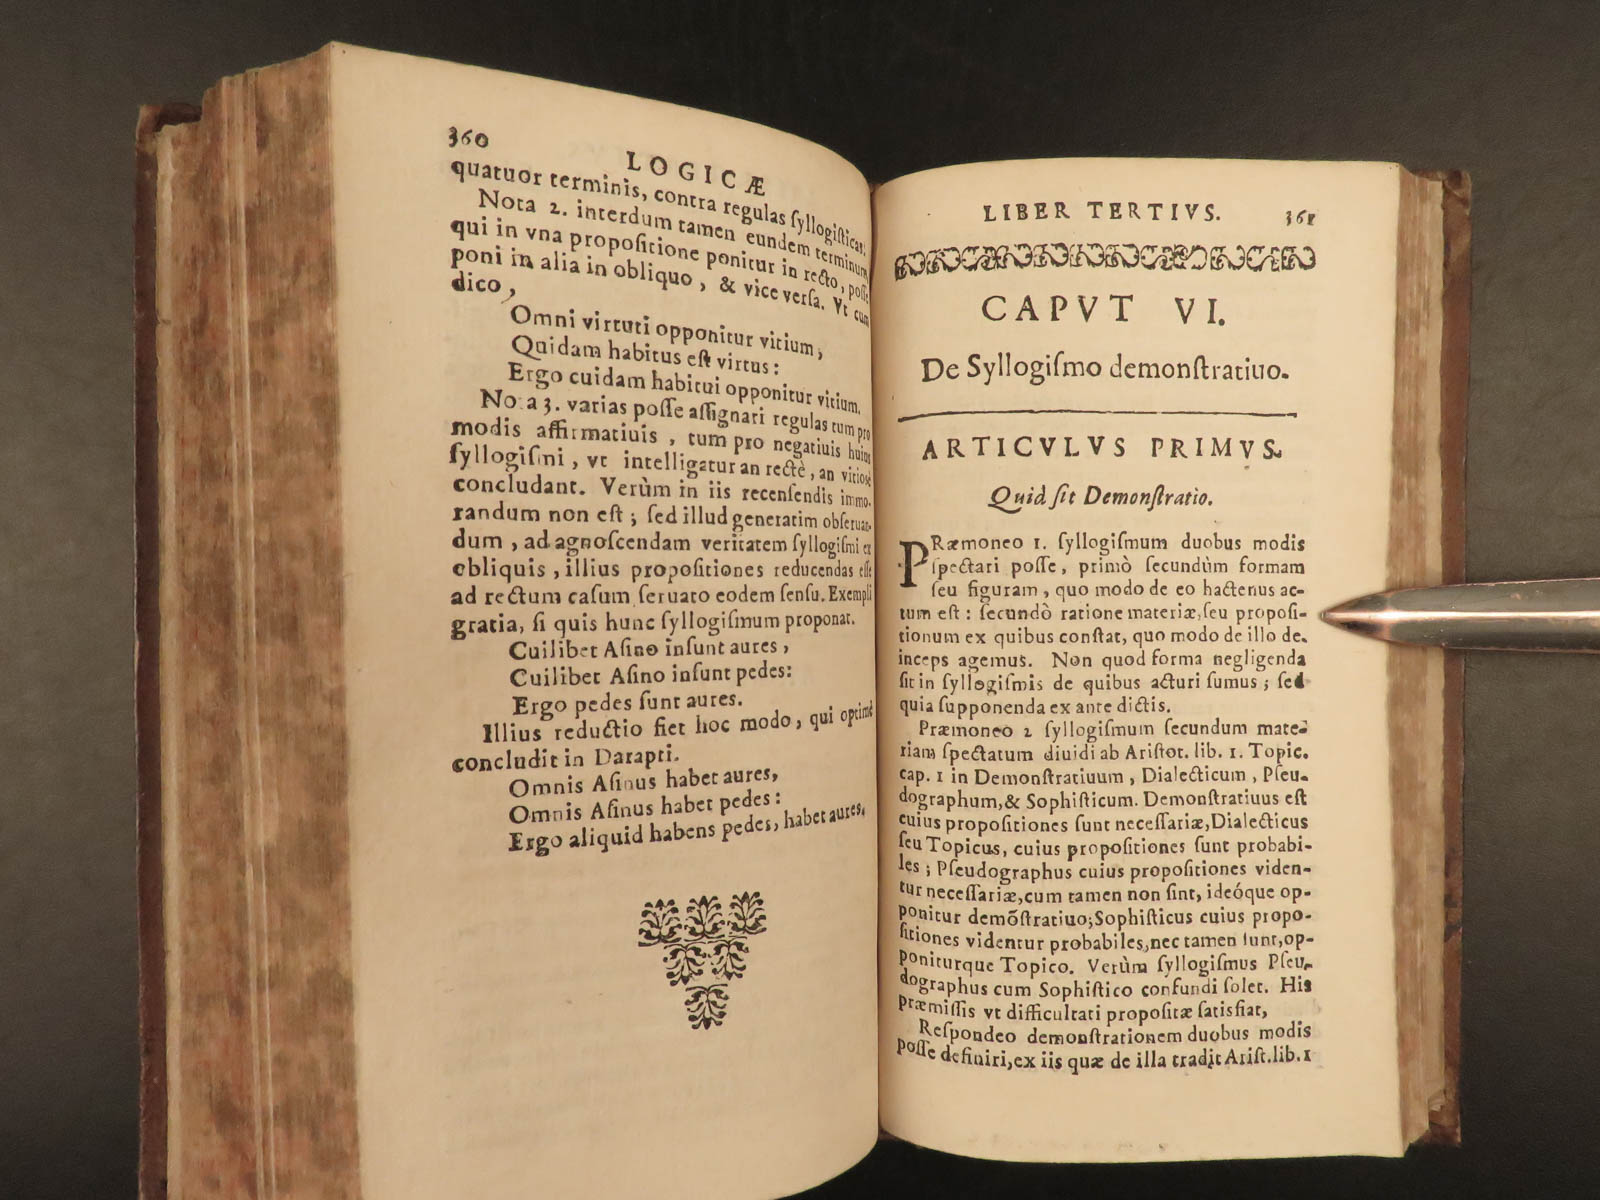 360
LOGICÆ
quatuor terminis, contra regulas ſyllogiſticas.
Nota 2. interdum tamen eundem terminum
qui in vna propoſitione ponitur in recto, poſſe
poni in alia in obliquo, & vice verſa. Vt cum
dico,
Omni virtuti opponitur vitium,
Quidam habitus eſt virtus:
Ergo cuidam habitui opponitur vitium.
Nota 3. varias poſſe aſſignari regulas tum pro
modis affirmatiuis, tum pro negatiuis huius
ſyllogiſmi, vt intelligatur an rectè, an vitiosè
concludant. Verùm in iis recenſendis immo-
randum non eſt; ſed illud generatim obſeruan-
dum, ad agnoſcendam veritatem ſyllogiſmi ex
obliquis, illius propoſitiones reducendas eſſe
ad rectum caſum ſeruato eodem ſenſu. Exempli
gratia, ſi quis hunc ſyllogiſmum proponat.
Cuilibet Aſino inſunt aures,
Cuilibet Aſino inſunt pedes:
Ergo pedes ſunt aures.
Illius reductio fiet hoc modo, qui optimè
concludit in Darapti.
Omnis Aſinus habet aures,
Omnis Aſinus habet pedes:
Ergo aliquid habens pedes, habet aures.
LIBER TERTIVS.
361
CAPVT VI.
De Syllogiſmo demonſtratiuo.
ARTICVLVS PRIMVS.
Quid ſit Demonſtratio.
PRæmoneo 1. ſyllogiſmum duobus modis
ſpectari poſſe, primò ſecundùm formam
ſeu figuram, quo modo de eo hactenus ac-
tum eſt: ſecundò ratione materiæ, ſeu propoſi-
tionum ex quibus conſtat, quo modo de illo de-
inceps agemus. Non quod forma negligenda
ſit in ſyllogiſmis de quibus acturi ſumus; ſed
quia ſupponenda ex ante dictis.
Præmoneo 2 ſyllogiſmum ſecundum mate-
riam ſpectatum diuidi ab Ariſtot. lib. 1. Topic.
cap. 1 in Demonſtratiuum, Dialecticum, Pſeu-
dographum, & Sophiſticum. Demonſtratiuus eſt
cuius propoſitiones ſunt neceſſariæ, Dialecticus
ſeu Topicus, cuius propoſitiones ſunt probabi-
les; Pſeudographus cuius propoſitiones viden-
tur neceſſariæ, cum tamen non ſint, ideóque op-
ponitur demõſtratiuo; Sophiſticus cuius propo-
ſitiones videntur probabiles, nec tamen ſunt, op-
poniturque Topico. Verùm ſyllogiſmus Pſeu-
dographus cum Sophiſtico confundi ſolet. His
præmiſſis vt difficultati propoſitæ ſatisfiat,
Reſpondeo demonſtrationem duobus modis
poſſe definiri, ex iis quæ de illa tradit Ariſt. lib. 1